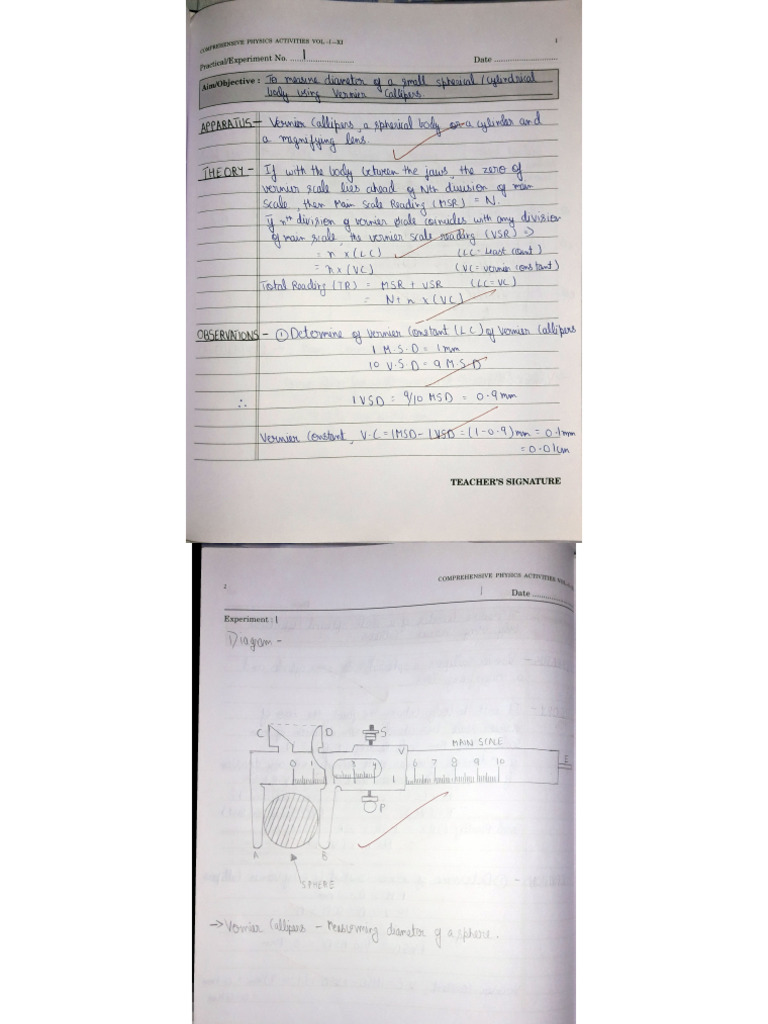 COMPREHENSIVE PHYSICS ACTIVITIES VOL.-I-XI 1
Practical/Experiment No. ...1... Date ...................
Aim/Objective : To measure diameter of a small spherical / cylindrical
body using Vernier Callipers.
APPARATUS - Vernier Callipers, a spherical body or a cylinder and
a magnifying lens.
THEORY - If with the body between the jaws, the zero of
vernier scale lies ahead of Nth division of main
scale, then Main Scale Reading (MSR) = N.
If nth division of vernier scale coincides with any division
of main scale, the vernier scale reading (VSR) ⇒
= n x (LC) (LC = Least count)
= n x (VC) (VC = vernier constant)
Total Reading (TR) = MSR + VSR (LC = VC)
= N + n x (VC)
OBSERVATIONS - ① Determine of vernier constant (LC) of vernier callipers
1 M.S.D = 1mm
10 V.S.D = 9 M.S.D
∴ 1VSD = 9/10 MSD = 0.9mm
Vernier Constant, V.C = 1MSD - 1VSD = (1-0.9)mm = 0.1mm
= 0.01cm
TEACHER'S SIGNATURE
COMPREHENSIVE PHYSICS ACTIVITIES
2
1 Date ..........
Experiment : 1
Diagram -
C D S
V MAIN SCALE
0 1 3 4 6 7 8 9 10 E
P
A B
SPHERE
→ Vernier Callipers - Measuring diameter of a sphere.